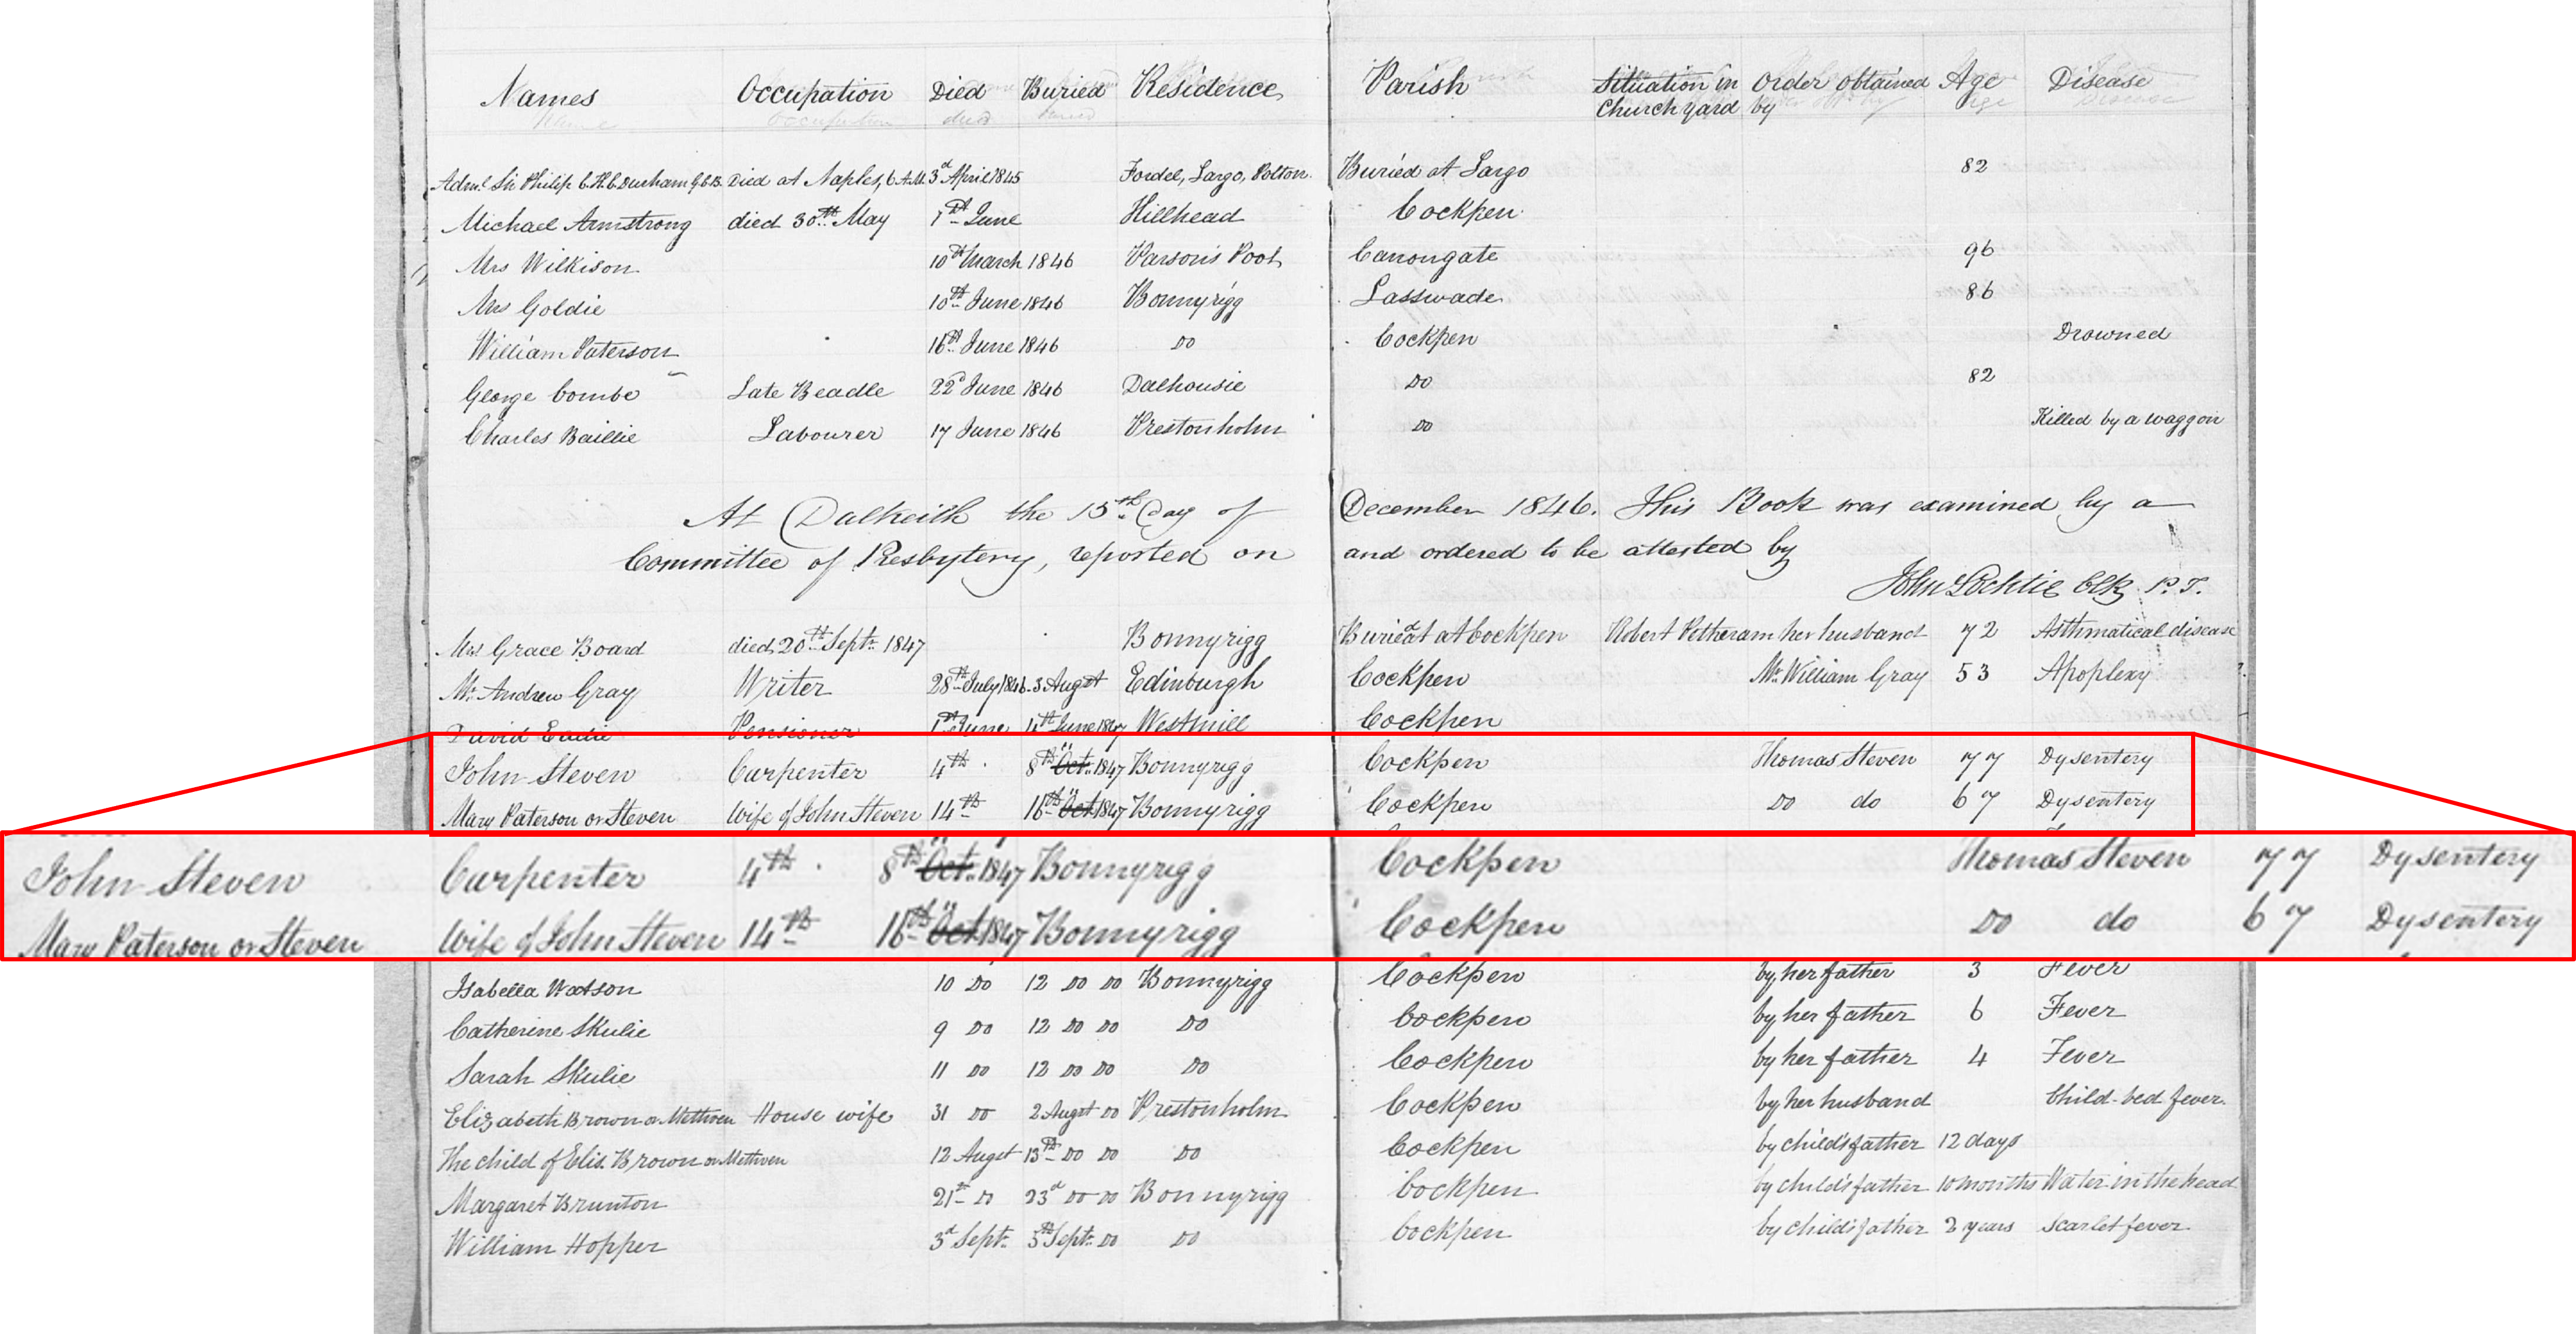 Names Occupation Died Buried Residence Parish Situation in Church yard Order obtained by Age Disease
Adml. Sir Philip C. H. C. Durham G.C.B. Died at Naples, 6 A.M. 3d April 1845 Fordel, Largo, Polton. Buried at Largo 82
Michael Armstrong died 30th May 1st June Hillhead Cockpen
Mrs Wilkison 10th March 1846 Canongate 96
Mrs Goldie 10th June 1846 Bonnyrigg Lasswade 86
William Paterson 16th June 1846 Do Cockpen Drowned
George Combe Late Beadle 22d June 1846 Dalhousie Do 82
Charles Baillie Labourer 17 June 1846 Prestonholm Do Killed by a waggon
At Dalkeith the 15th Day of December 1846. This Book was examined by a
Committee of Presbytery, reported on and ordered to be attested by
John Clk. P. T.
Mrs Grace Board died 20th Septr. 1847 Bonnyrigg Buried at Cockpen Robert Petheram her husband 72 Asthmatical disease
Mr. Andrew Gray Writer 28th July 1846. 3 Augst Edinburgh Cockpen Mr. William Gray 53 Apoplexy
David Eadie Pensioner 1st June 4th June 1847 Westmill Cockpen
John Steven Carpenter 4th 8th Oct. 1847 Bonnyrigg Cockpen Thomas Steven 77 Dysentery
Mary Paterson or Steven Wife of John Steven 14th 16th Oct 1847 Bonnyrigg Cockpen Do do 67 Dysentery
John Steven Carpenter 4th 8th Oct. 1847 Bonnyrigg Cockpen Thomas Steven 77 Dysentery
Mary Paterson or Steven Wife of John Steven 14th 16th Oct 1847 Bonnyrigg Cockpen Do do 67 Dysentery
Isabella Watson 10 Do 12 Do Do Bonnyrigg Cockpen by her father 3 Fever
Catherine Skulie 9 Do 12 Do Do Do Cockpen by her father 6 Fever
Sarah Skulie 11 Do 12 Do Do Do Cockpen by her father 4 Fever
Elizabeth Brown or Methven House wife 31 Do 2 Augst Do Prestonholm Cockpen by her husband Child-bed fever.
The child of Elis. Brown or Methven 12 Augst 13th Do Do Do Cockpen by child's father 12 days
Margaret Brunton 21st Do 23d Do Do Bonnyrigg Cockpen by child's father 10 months Water in the head
William Hopper 3d Septr. 5th Septr. Do Do Cockpen by child's father 2 years Scarlet fever